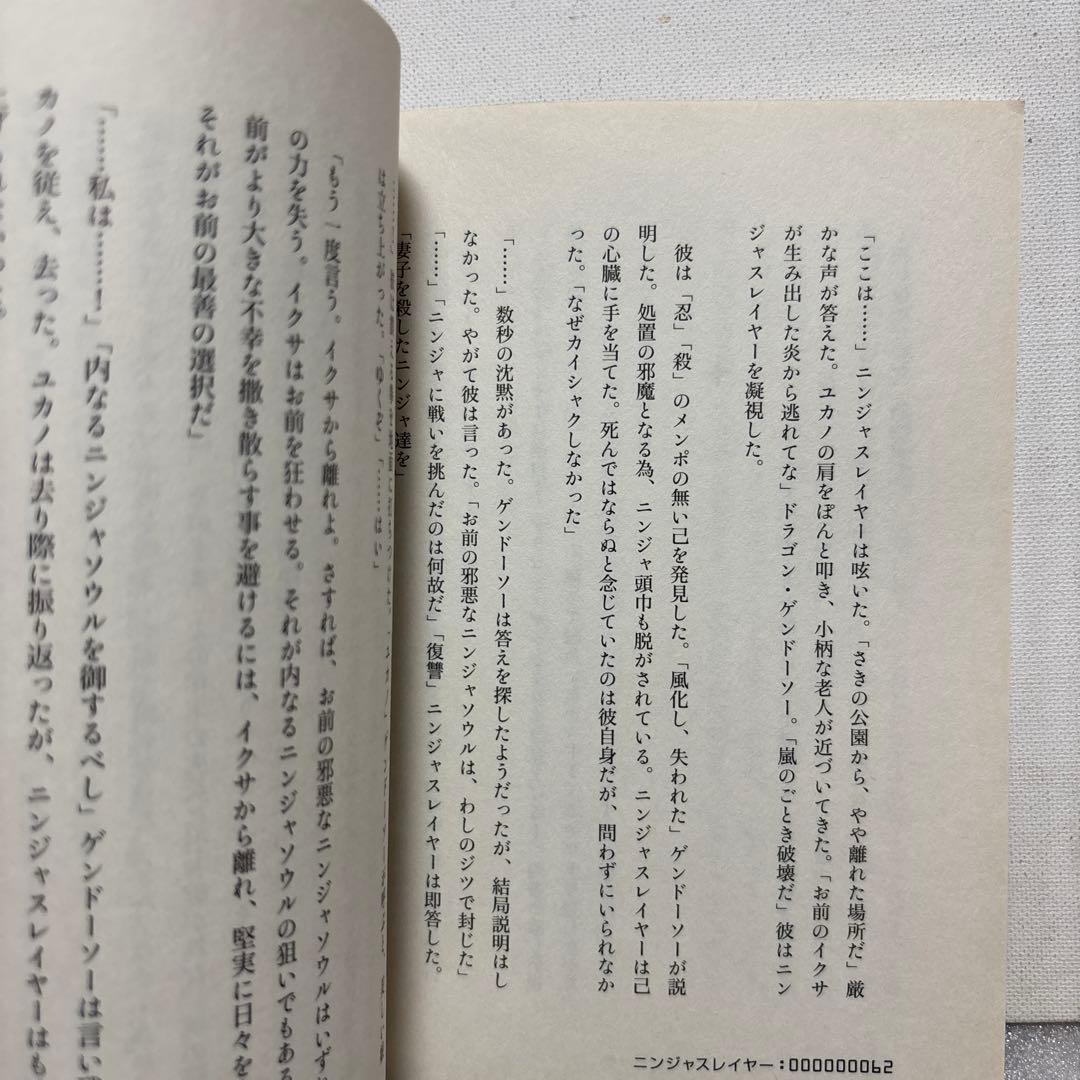 「ここは……」ニンジャスレイヤーは呟いた。「さきの公園から、やや離れた場所だ」厳
かな声が答えた。ユカノの肩をぽんと叩き、小柄な老人が近づいてきた。「お前のイクサ
が生み出した炎から逃れてな」ドラゴン・ゲンドーソー。「嵐のごとき破壊だ」彼はニン
ジャスレイヤーを凝視した。
彼は「忍」「殺」のメンポの無い己を発見した。「風化し、失われた」ゲンドーソーが説
明した。処置の邪魔となる為、ニンジャ頭巾も脱がされている。ニンジャスレイヤーは己
の心臓に手を当てた。死んではならぬと念じていたのは彼自身だが、問わずにいられなか
った。「なぜカイシャクしなかった」
「……」数秒の沈黙があった。ゲンドーソーは答えを探したようだったが、結局説明はし
なかった。やがて彼は言った。「お前の邪悪なニンジャソウルは、わしのジツで封じた」
「……」「ニンジャに戦いを挑んだのは何故だ」「復讐」ニンジャスレイヤーは即答した。
「妻子を殺したニンジャ達を」
ニンジャスレイヤー:000000062
は立ち上がった。「ゆくぞ」「……はい」
「もう一度言う。イクサから離れよ。さすれば、お前の邪悪なニンジャソウルはいず
の力を失う。イクサはお前を狂わせる。それが内なるニンジャソウルの狙いでもある
前がより大きな不幸を撒き散らす事を避けるには、イクサから離れ、堅実に日々を
それがお前の最善の選択だ」
「……私は……！」「内なるニンジャソウルを御するべし」ゲンドーソーは言い
カノを従え、去った。ユカノは去り際に振り返ったが、ニンジャスレイヤーはも